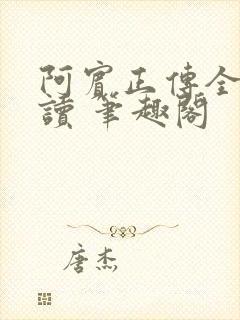 阿賓正傳全
讀 筆趣閣
唐杰